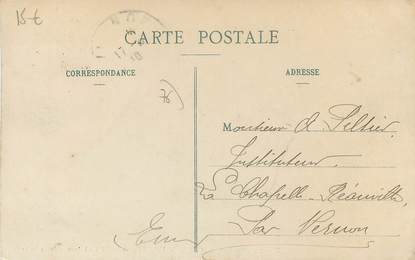 15€
CARTE POSTALE
CORRESPONDANCE
ADRESSE
76
Monsieur A. Peltier
Instituteur
La Chapelle-Réanville
Par Vernon
Eure